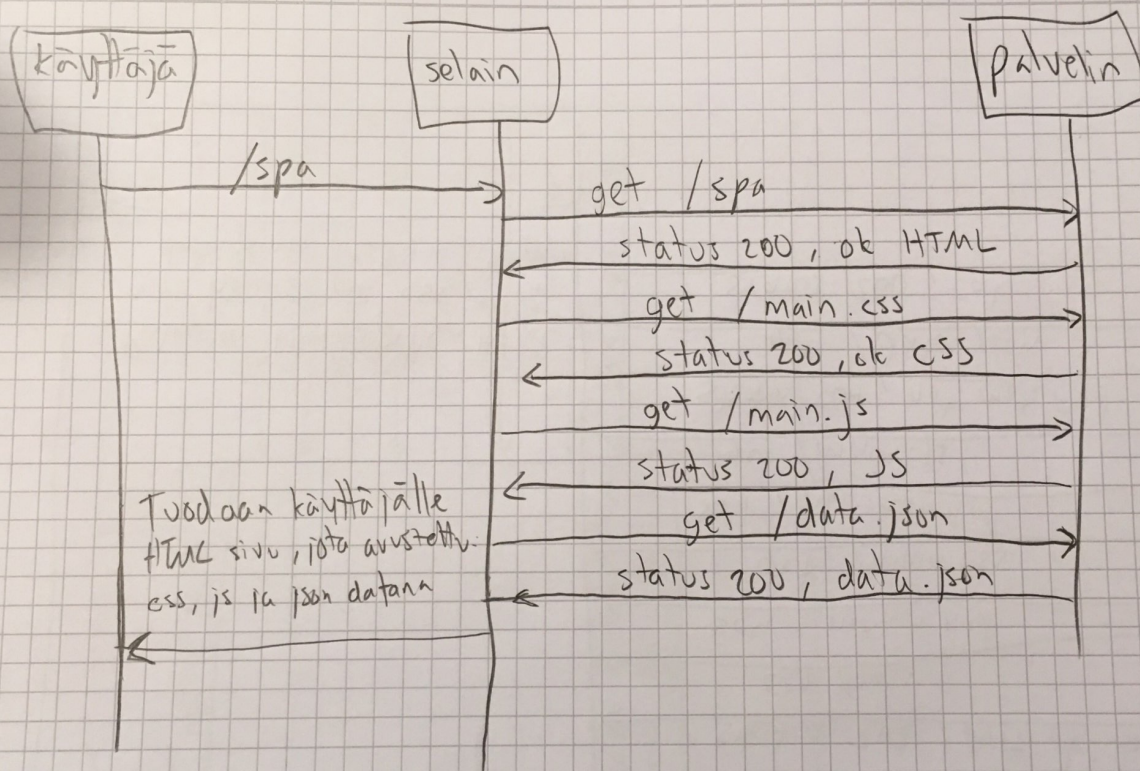 käyttäjä
selain
palvelin
/spa
get /spa
status 200, ok HTML
get /main.css
status 200, ok css
get /main.js
status 200, JS
get /data.json
status 200, data.json
Tuodaan käyttäjälle
HTML sivu, jota avustettu
css, js ja json datana